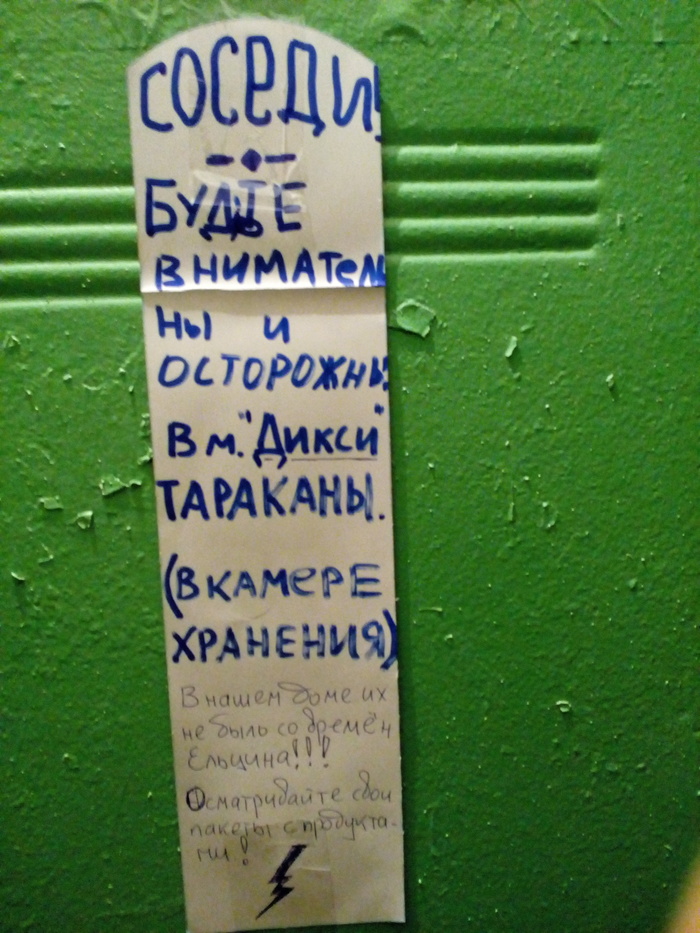 СОСЕДИ!
БУДЬТЕ
ВНИМАТЕЛЬ
НЫ И
ОСТОРОЖНЫ.
В м. "Дикси"
ТАРАКАНЫ.
(В КАМЕРЕ
ХРАНЕНИЯ)
В нашем доме их
не было со времён
Ельцина!!!
Осматривайте свои
пакеты с продукта-
ми!